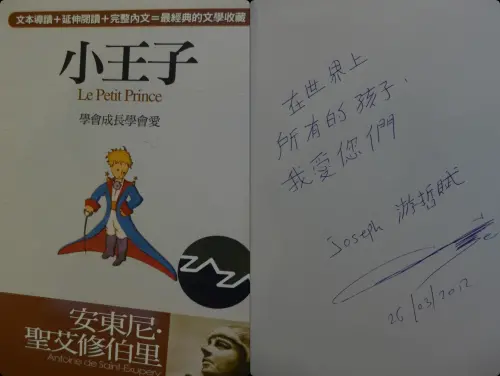 文本導讀+延伸閱讀+完整內文=最經典的文學收藏
小王子
Le Petit Prince
學會成長學會愛
安東尼·
聖艾修伯里
Antoine de Saint-Exupery
在世界上
所有的孩子,
我愛您們
Joseph 游哲賦
26/03/2012